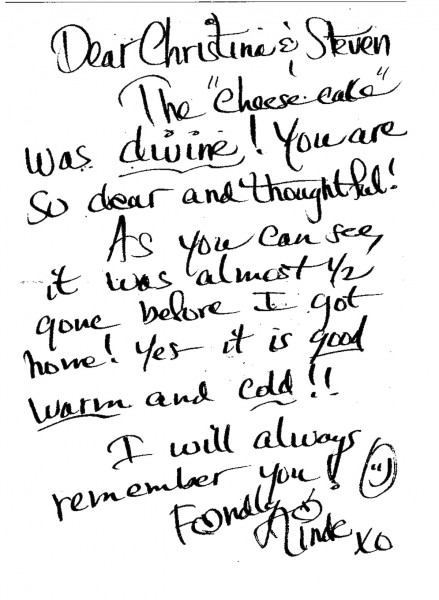 Dear Christine & Steven
The "cheese cake"
was divine! You are
so dear and thoughtful!
As you can see,
it was almost 1/2
gone before I got
home! Yes it is good
warm and cold!!
I will always
remember you!
Fondly
Linda XO